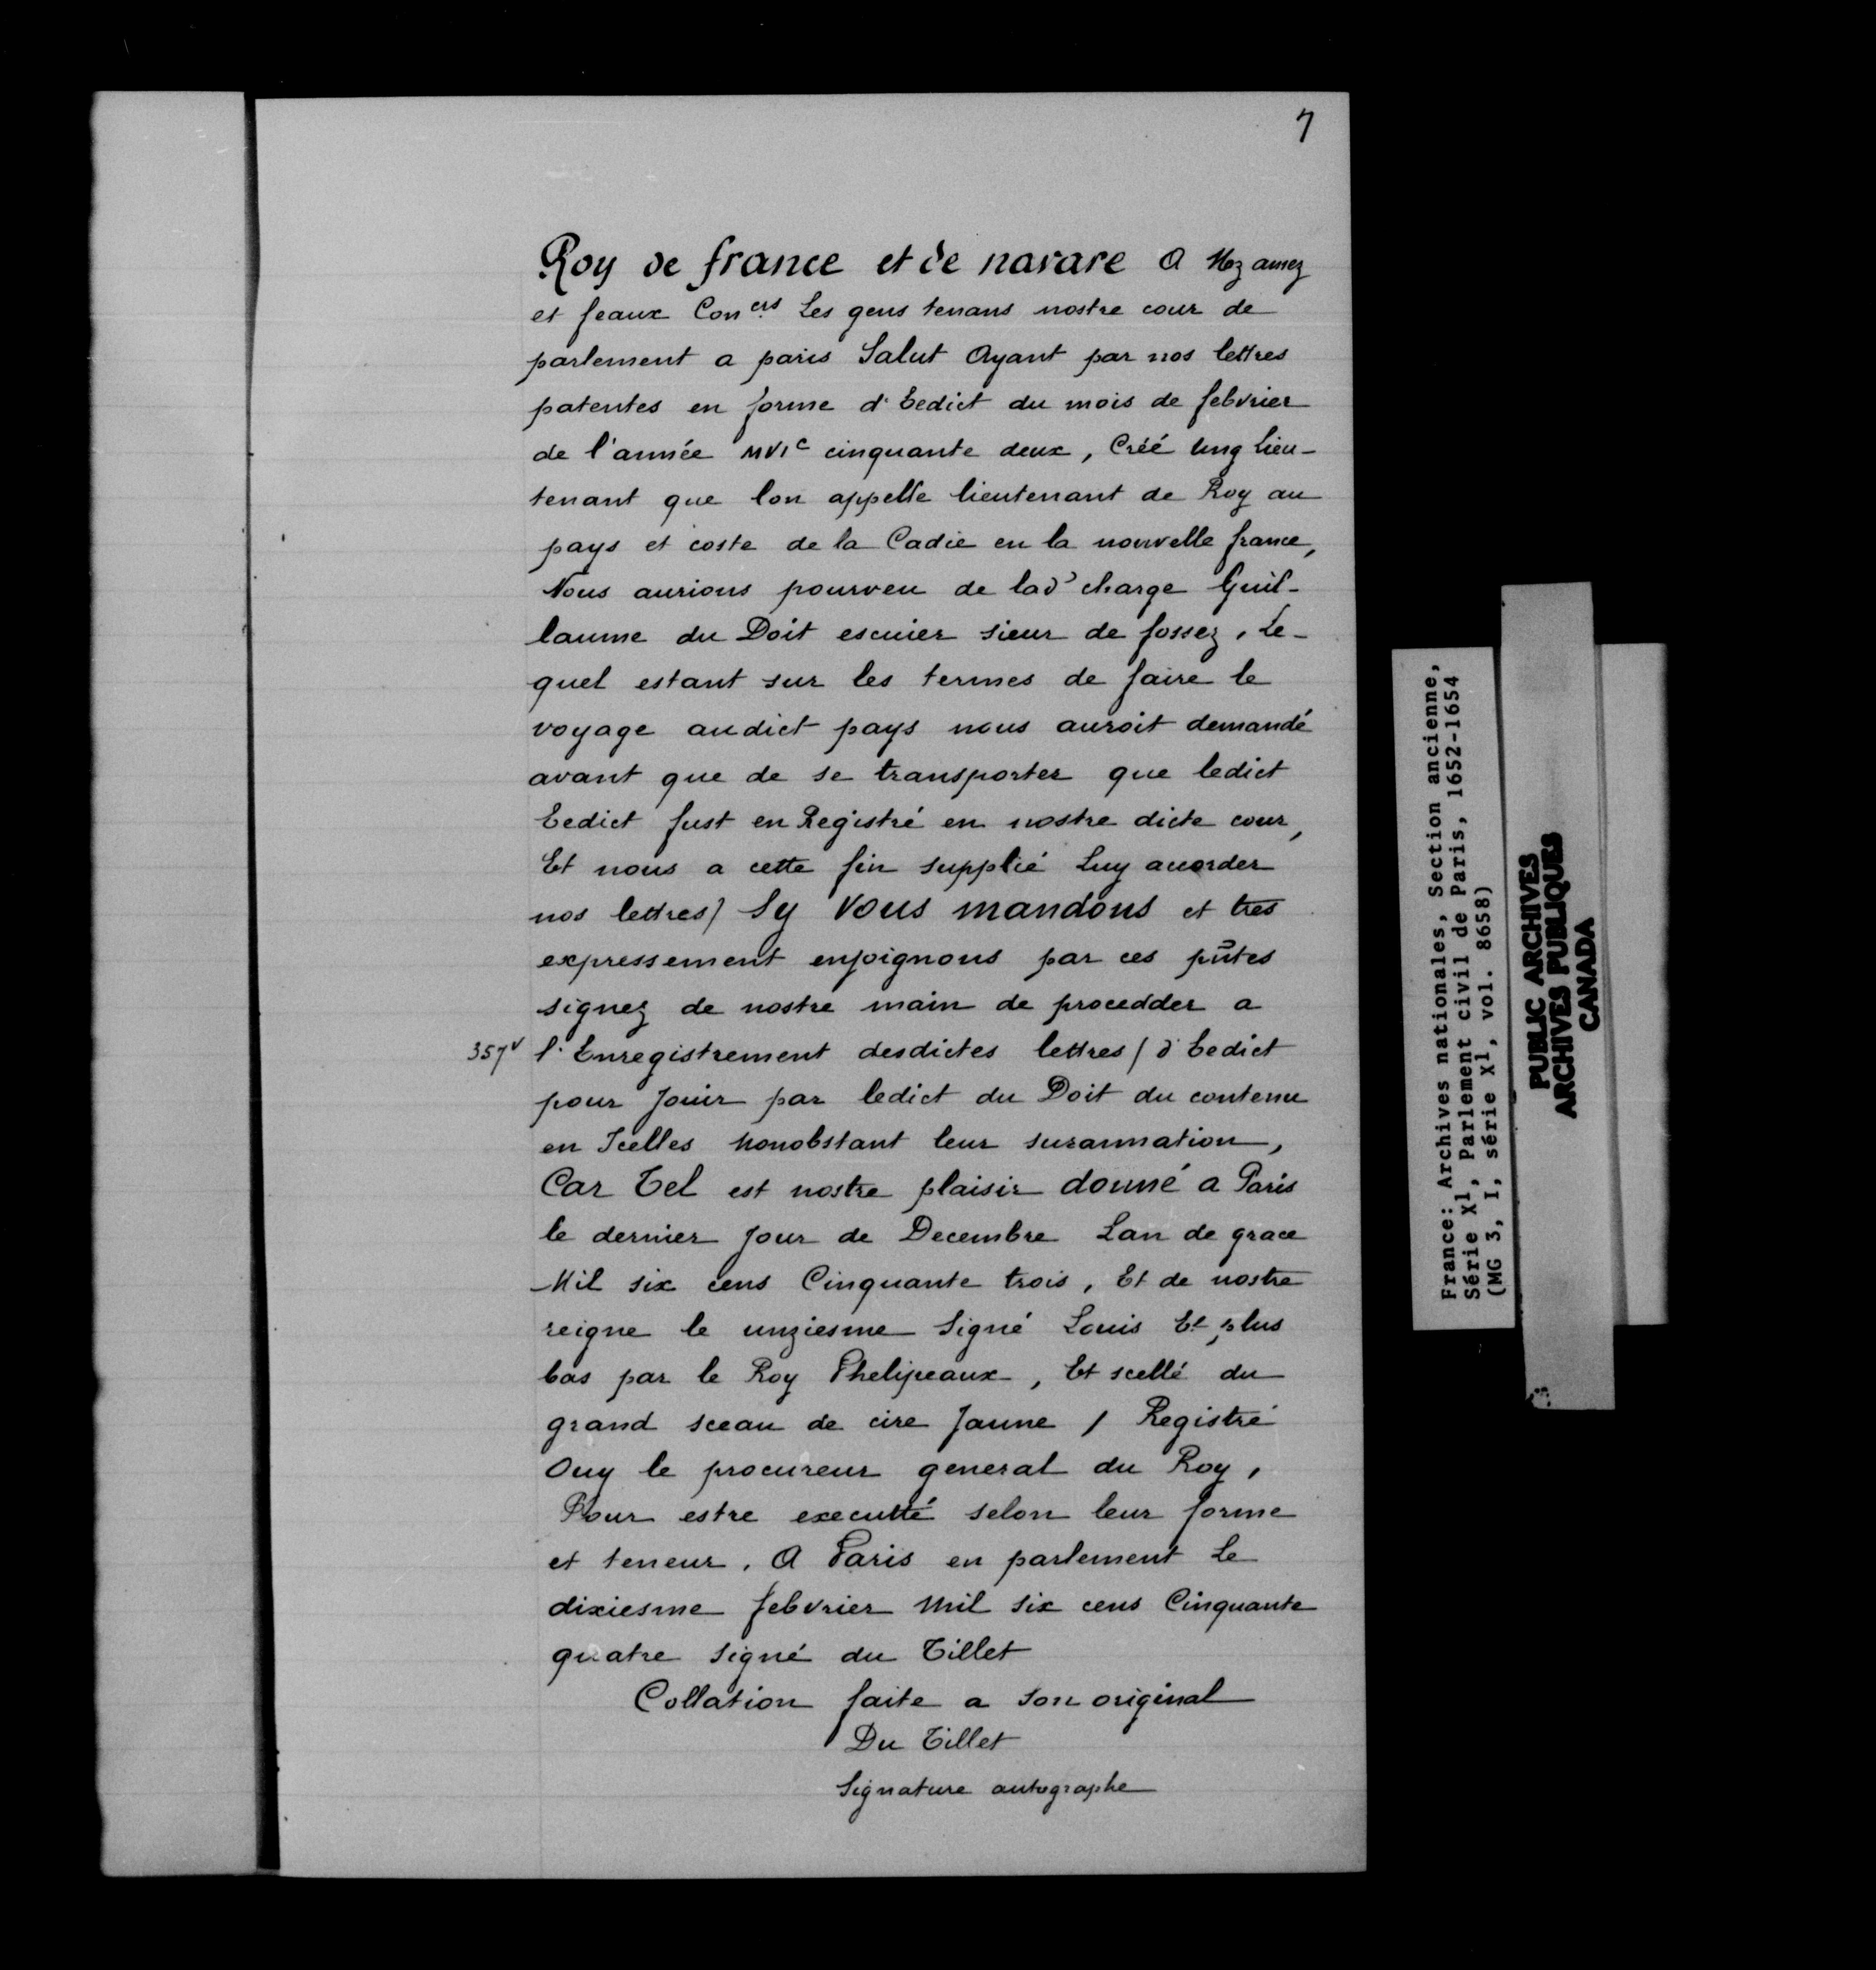 7
Roy de france et de navare A Noz amez
et feaux Con.ers Les gens tenans nostre cour de
parlement a paris Salut Ayant par nos lettres
patentes en forme d'Eedict du mois de febvrier
de l'année MVIc cinquante deux, Créé ung Lieu-
tenant que lon appelle lieutenant de Roy au
pays et coste de la Cadie en la nouvelle france,
Nous aurions pourveu de lad' charge Guil-
laume du Doit escuier sieur de fossez, Le-
quel estant sur les termes de faire le
voyage audict pays nous auroit demandé
avant que de se transporter que ledict
Eedict fust en Registré en nostre dicte cour,
Et nous a cette fin supplié Luy acorder
nos lettres/ Sy Vous mandons et tres
expressement enjoignons par ces pn̄tes
signez de nostre main de procedder a
357v l'Enregistrement desdictes lettres/ d'Eedict
pour Jouir par ledict du Doit du contenu
en Icelles Nonobstant leur surannation,
Car Tel est nostre plaisir donné a Paris
le dernier Jour de Decembre Lan de grace
Mil six cens Cinquante trois, Et de nostre
reigne le unziesme Signé Louis Et plus
bas par le Roy Phelipeaux, Et scellé du
grand sceau de cire Jaune / Registré
Ouy le procureur general du Roy,
Pour estre executté selon leur forme
et teneur. A Paris en parlement Le
dixiesme febvrier Mil six cens Cinquante
quatre Signé du Tillet
Collation faite a son original
Du Tillet
Signature autographe
France: Archives nationales, Section ancienne,
Série X1, Parlement civil de Paris, 1652-1654
(MG 3, I, série X1, vol. 8658)
PUBLIC ARCHIVES
ARCHIVES PUBLIQUES
CANADA